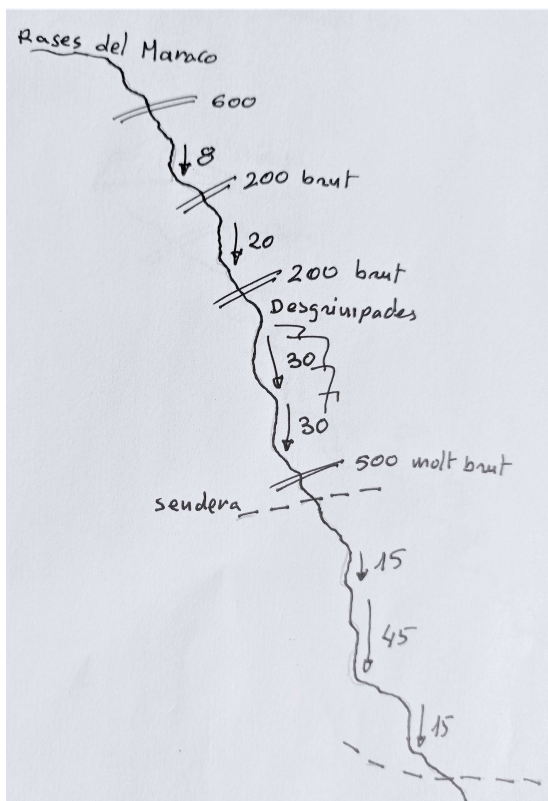 Rases del Maraco
600
8
200 brut
20
200 brut
Desgrimpades
30
30
500 molt brut
sendera
15
45
15